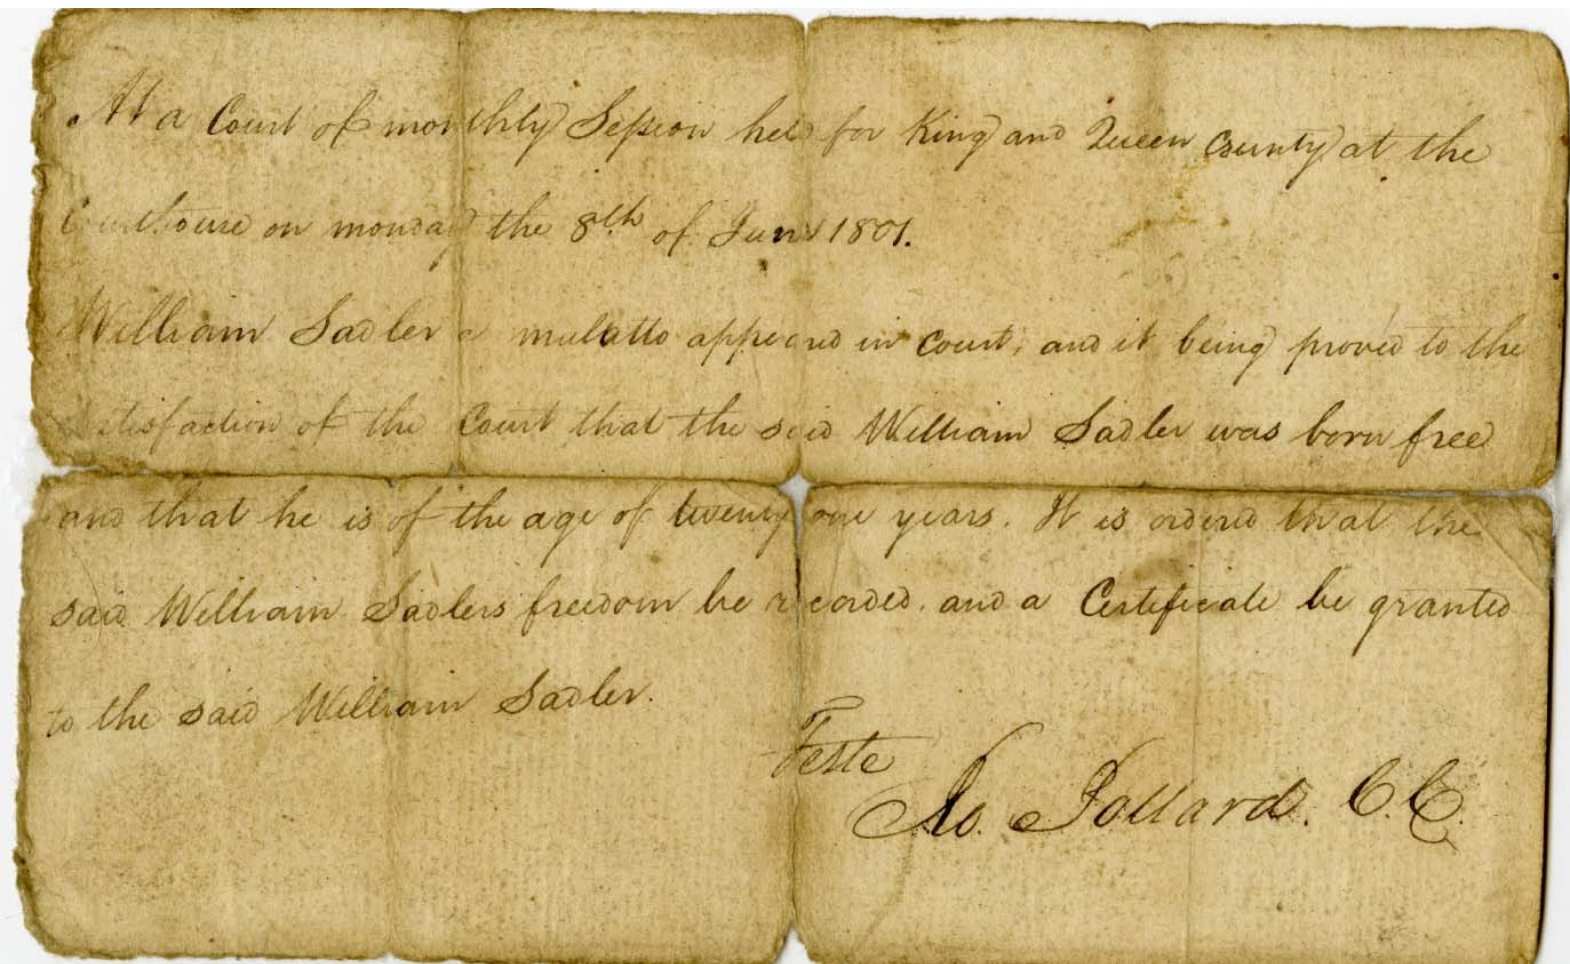 At a Court of monthly Session held for King and Queen County at the
Courthouse on monday the 8th of June 1801.
William Sadler a mulatto appeared in Court, and it being proved to the
satisfaction of the Court that the said William Sadler was born free
and that he is of the age of twenty one years. It is ordered that the
said William Sadlers freedom be recorded. and a Certificate be granted
to the said William Sadler.
Teste
Pollard. C.C.